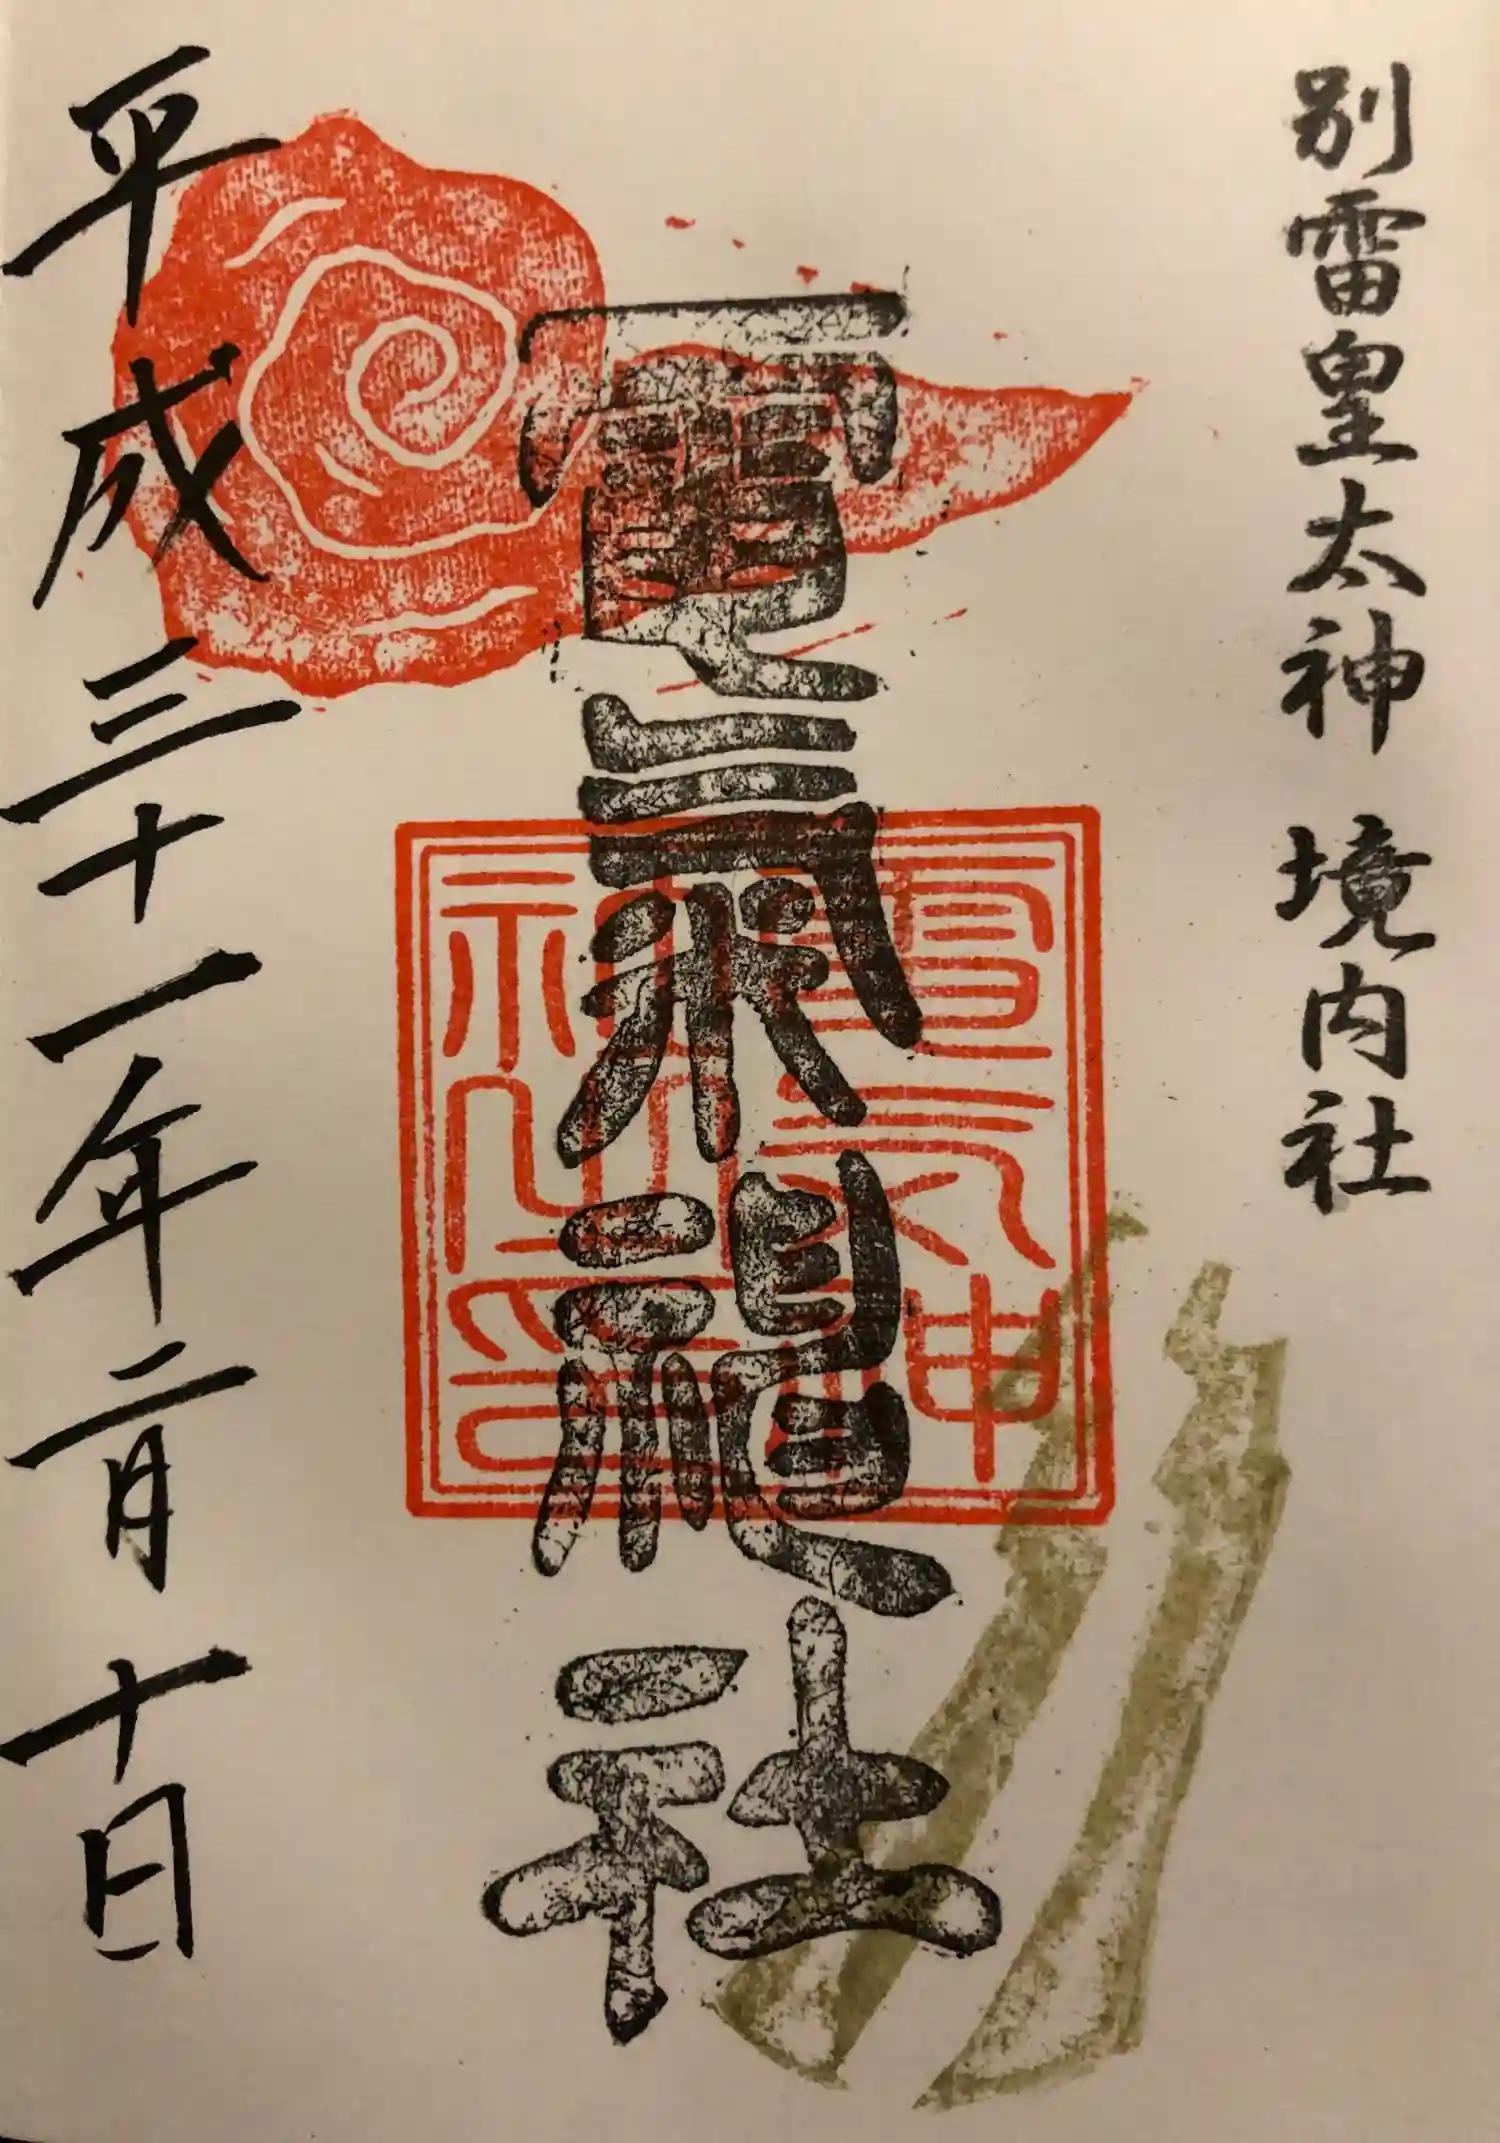 別雷皇太神 境内社
電氣神社
電気神
社之印
平成三十一年二月十日